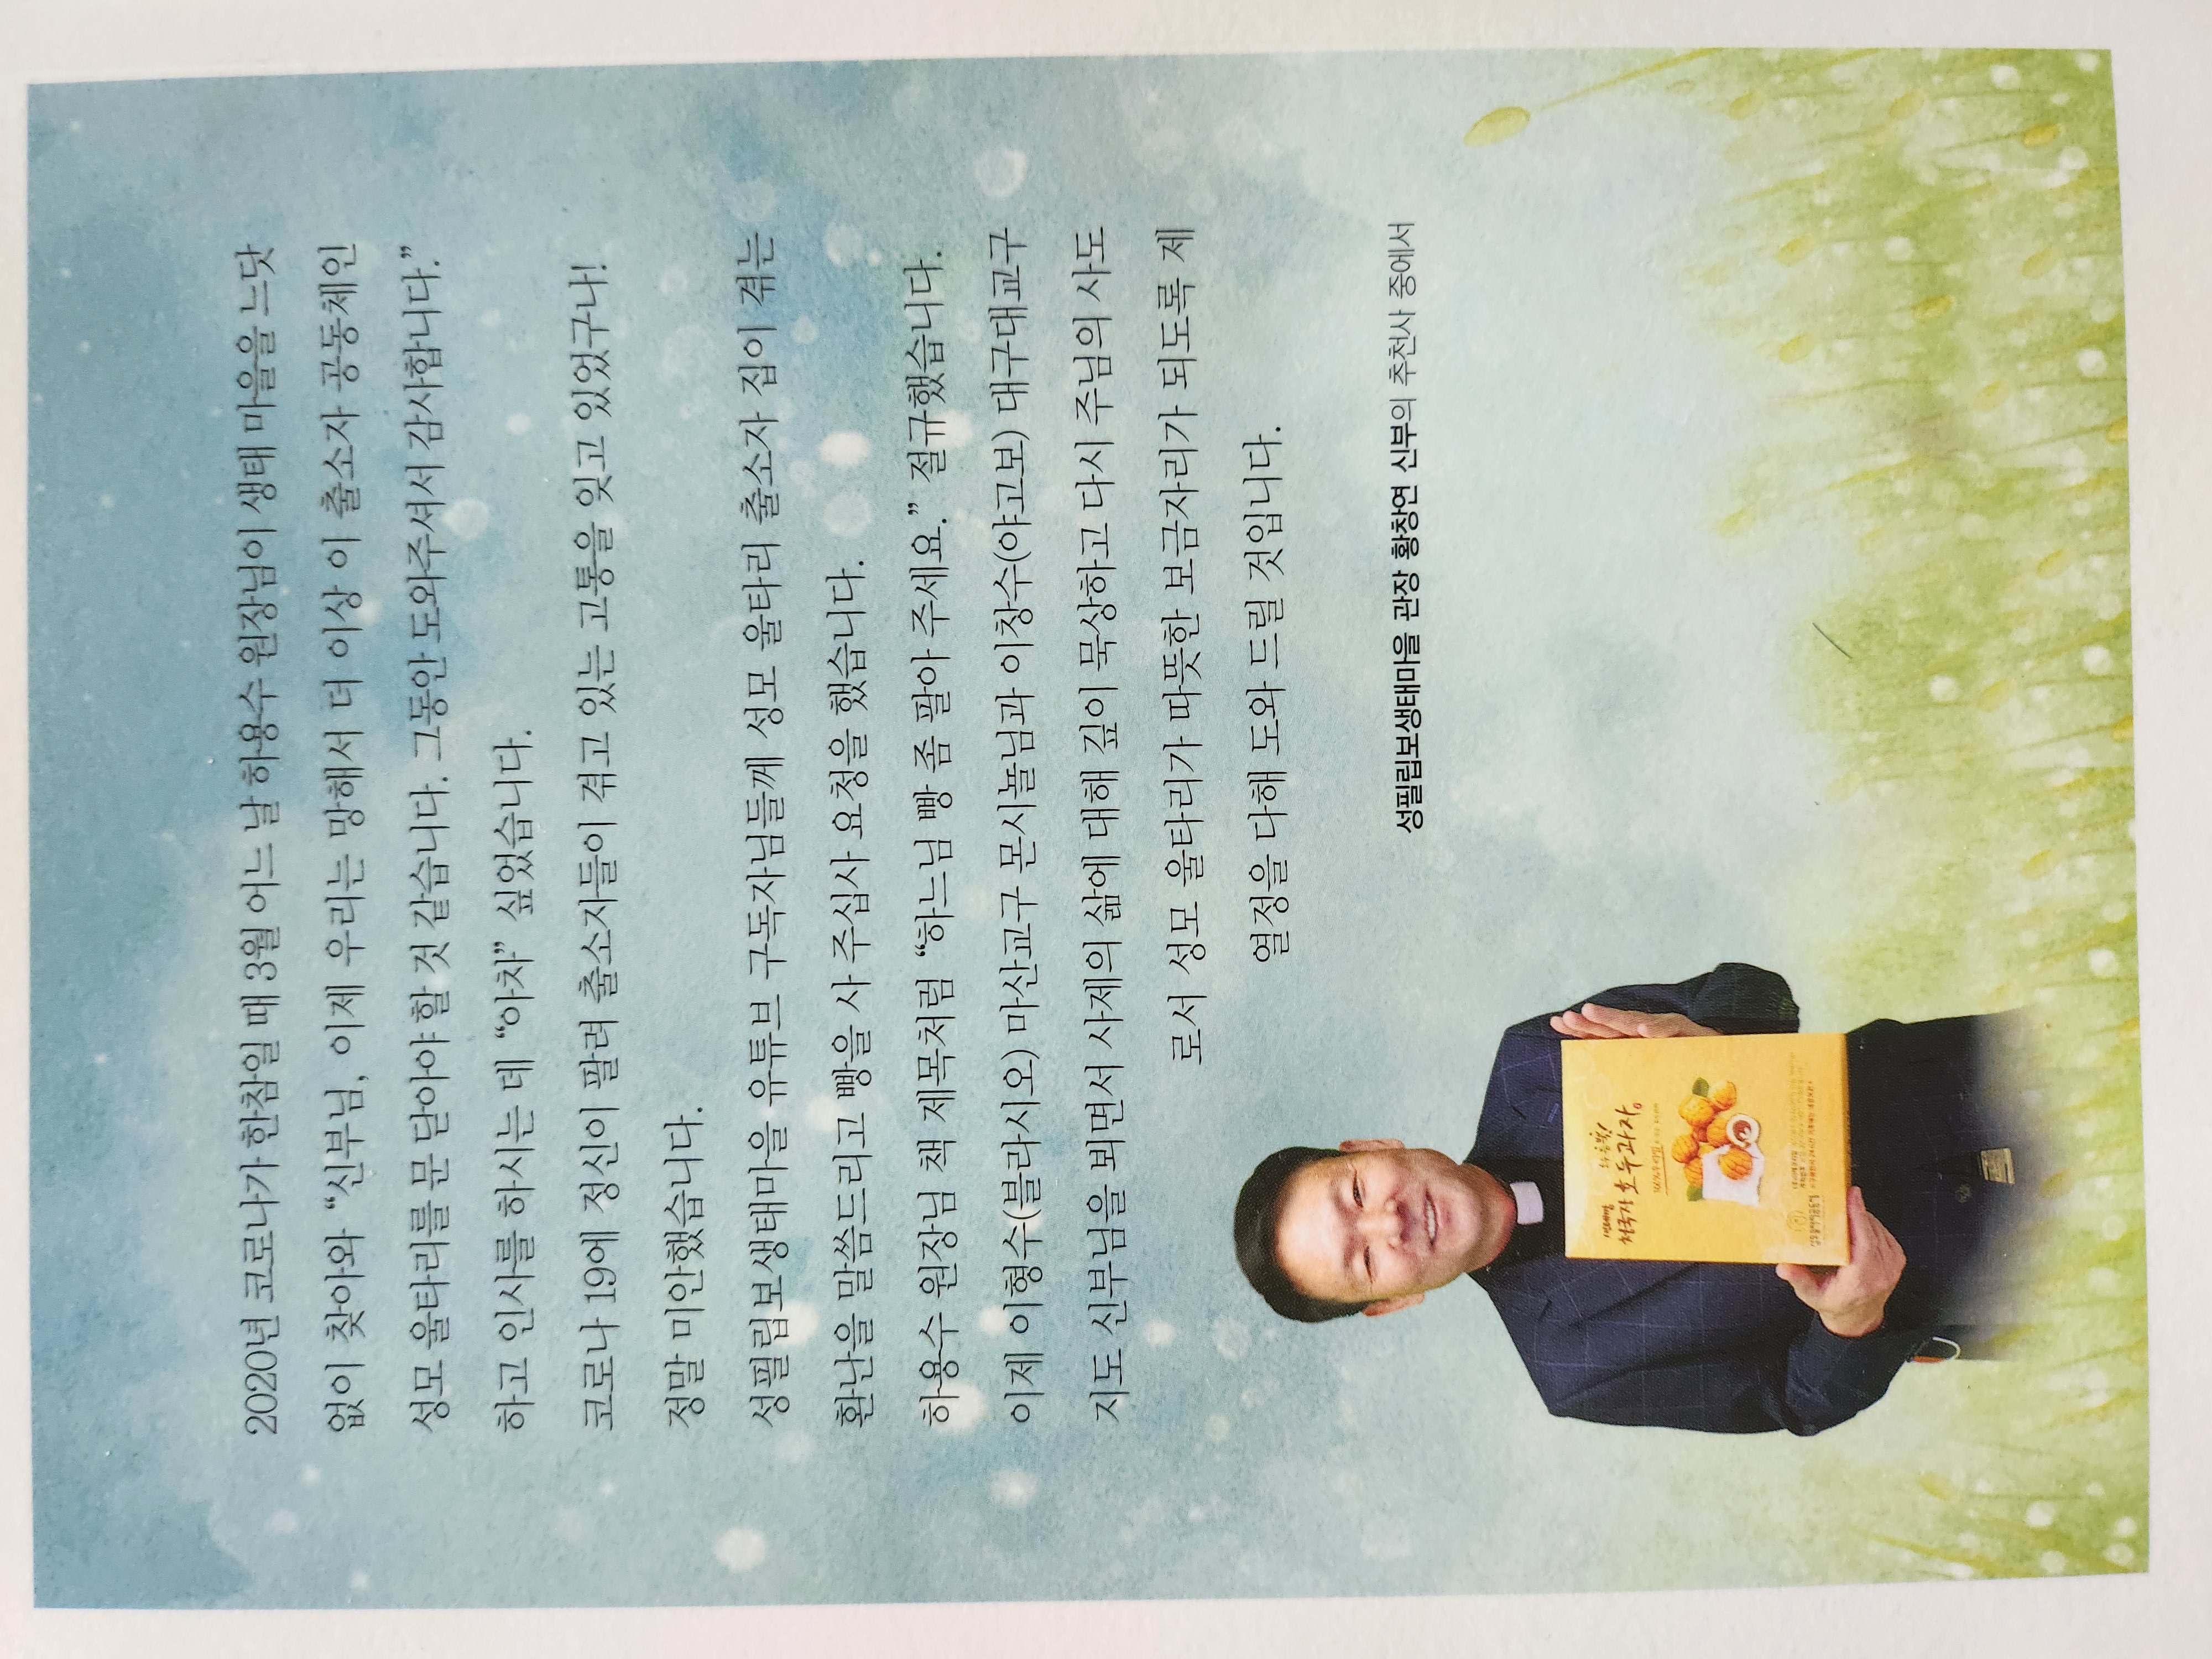 2020년 코로나가 한참일 때 3월 어느 날 하용수 원장님이 생태 마을을 느닷
없이 찾아와 “신부님, 이제 우리는 망해서 더 이상 이 출소자 공동체인
성모 울타리를 문 닫아야 할 것 같습니다. 그동안 도와주셔서 감사합니다.”
하고 인사를 하시는 데 “아차” 싶었습니다.
코로나 19에 정신이 팔려 출소자들이 겪고 있는 고통을 잊고 있었구나!
정말 미안했습니다.
성필립보생태마을 유튜브 구독자님들께 성모 울타리 출소자 집이 겪는
환난을 말씀드리고 빵을 사 주십사 요청을 했습니다.
하용수 원장님 책 제목처럼 “하느님 빵 좀 팔아 주세요.” 절규했습니다.
이제 이형수(블라시오) 마산교구 몬시뇰님과 이창수(야고보) 대구대교구
지도 신부님을 뵈면서 사제의 삶에 대해 깊이 묵상하고 다시 주님의 사도
로서 성모 울타리가 따뜻한 보금자리가 되도록 제
열정을 다해 도와 드릴 것입니다.
성필립보생태마을 관장 황창연 신부의 추천사 중에서
청국장 호두과자